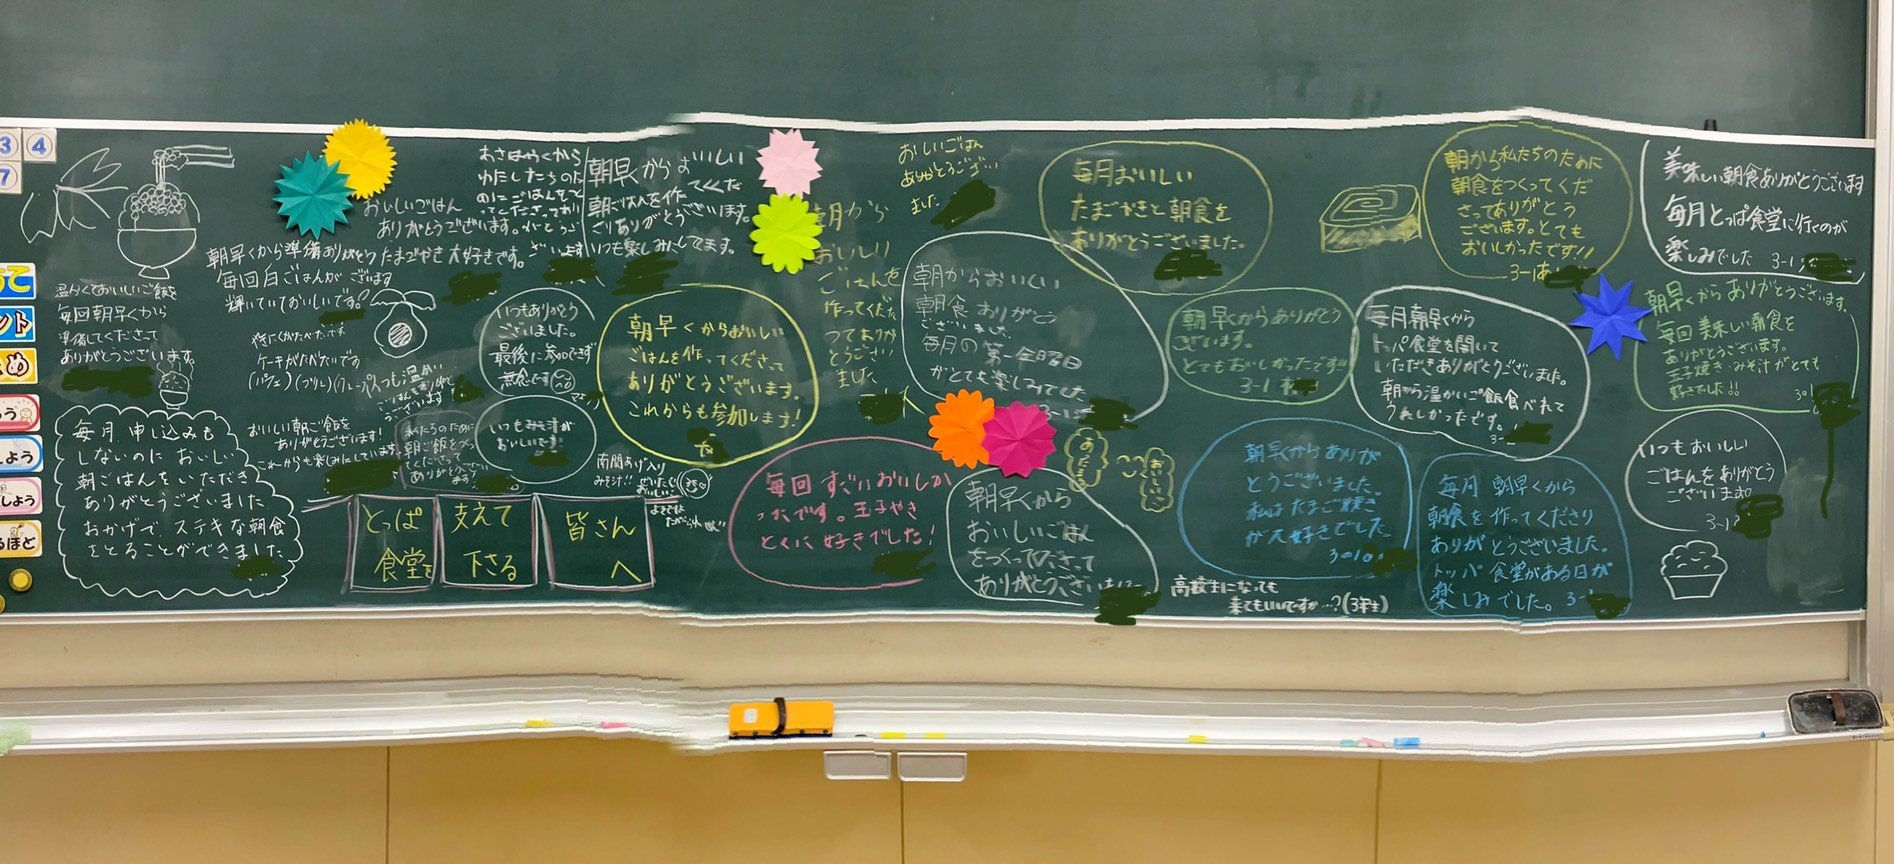 3
4
7
ント
め
しよう
るほど
温かくておいしいご飯を
毎回朝早くから
準備してくださって
ありがとうございます。
毎月、申し込みも
しないのに おいしい
朝ごはんをいただき
ありがとうございました
おかげで、ステキな朝食
をとることができました
朝早くから準備ありがとう
ございます
毎回白ごはんが
輝いていておいしいです。
ケーキがたべたいです
おいしいごはん
ありがとうございます。
たまごやき大好きです。
あさはやくから
わたしたちのた
めにごはんをつ
くってくださってあり
がとうご
ざいます
朝早くからおいしい
朝ごはんを作ってくださ
りありがとうございます。
いつも楽しみにしてます。
おいしい朝ご飯を
ありがとうございます!
これからも楽しみにしています
いつも温かい
ごはんをありがと
うございます
私たちのために
朝ご飯をつ
くださって
ありがとうござい
ます!
いつもありがとう
ございました。
最後に参加できず
無念です
いつもみそ汁が
おいしいです!
南関あげ入り
みそ汁!!
とっぱ
食堂を
支えて
下さる
皆さん
へ
朝早くからおいしい
ごはんを作ってくださって
ありがとうございます。
これからも参加します!
朝から
おいしい
ごはんを
作ってくださ
ってありが
とうござい
ました
おいしいごはん
ありがとうござい
ました
毎回 すごいおいしか
ったです。玉子やき
とくに 好きでした!
朝からおいしい
朝食ありがとう
ございました
毎月の第一金曜日
がとても楽しみでした
3-1
朝早くから
おいしいごはん
をつくってくださって
ありがとうござい
ました
おいしい
毎月おいしい
たまごやきと朝食を
ありがとうございました。
朝早くからありがとう
ございます。
とてもおいしかったです!!
3-1
朝早くからありが
とうございました。
私はたまご焼き
が大好きでした。
高校生になっても
来てもいいですか…?(3年生)
朝から私たちのために
朝食をつくってくだ
さってありがとう
ございます。とても
おいしかったです!!
3-1
毎月朝早くから
トッパ食堂を開いて
いただきありがとうございました。
朝から温かいご飯食べれて
うれしかったです。
3-
毎月 朝早くから
朝食を作ってくださり
ありがとうございました。
トッパ食堂がある日が
楽しみでした。 3-1
美味しい朝食ありがとうございます
毎月とっぱ食堂に行くのが
楽しみでした 3-1
朝早くからありがとうございます。
毎回美味しい朝食を
ありがとうございます。
玉子焼き・みそ汁がとても
好きでした!!
いつもおいしい
ごはんをありがとう
ございます
3-1